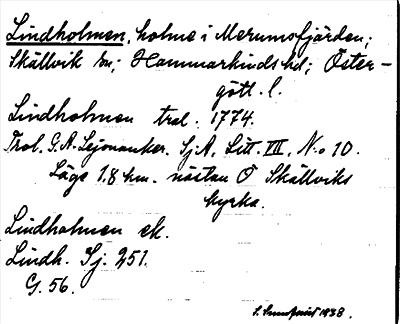 Lindholmen, holme i Merumsfjärden;
Skällvik sn; Hammarkinds hd; Öster-
götl. l.
Lindholmen tral. 1774.
Trol. G. A. Lejonanker. Sj.A. Litt. VIII. No 10.
Läge 1.8 km. nästan O Skällviks
kyrka.
Lindholmen ek.
Lindh. Sj. 251.
G. 56.
1938.